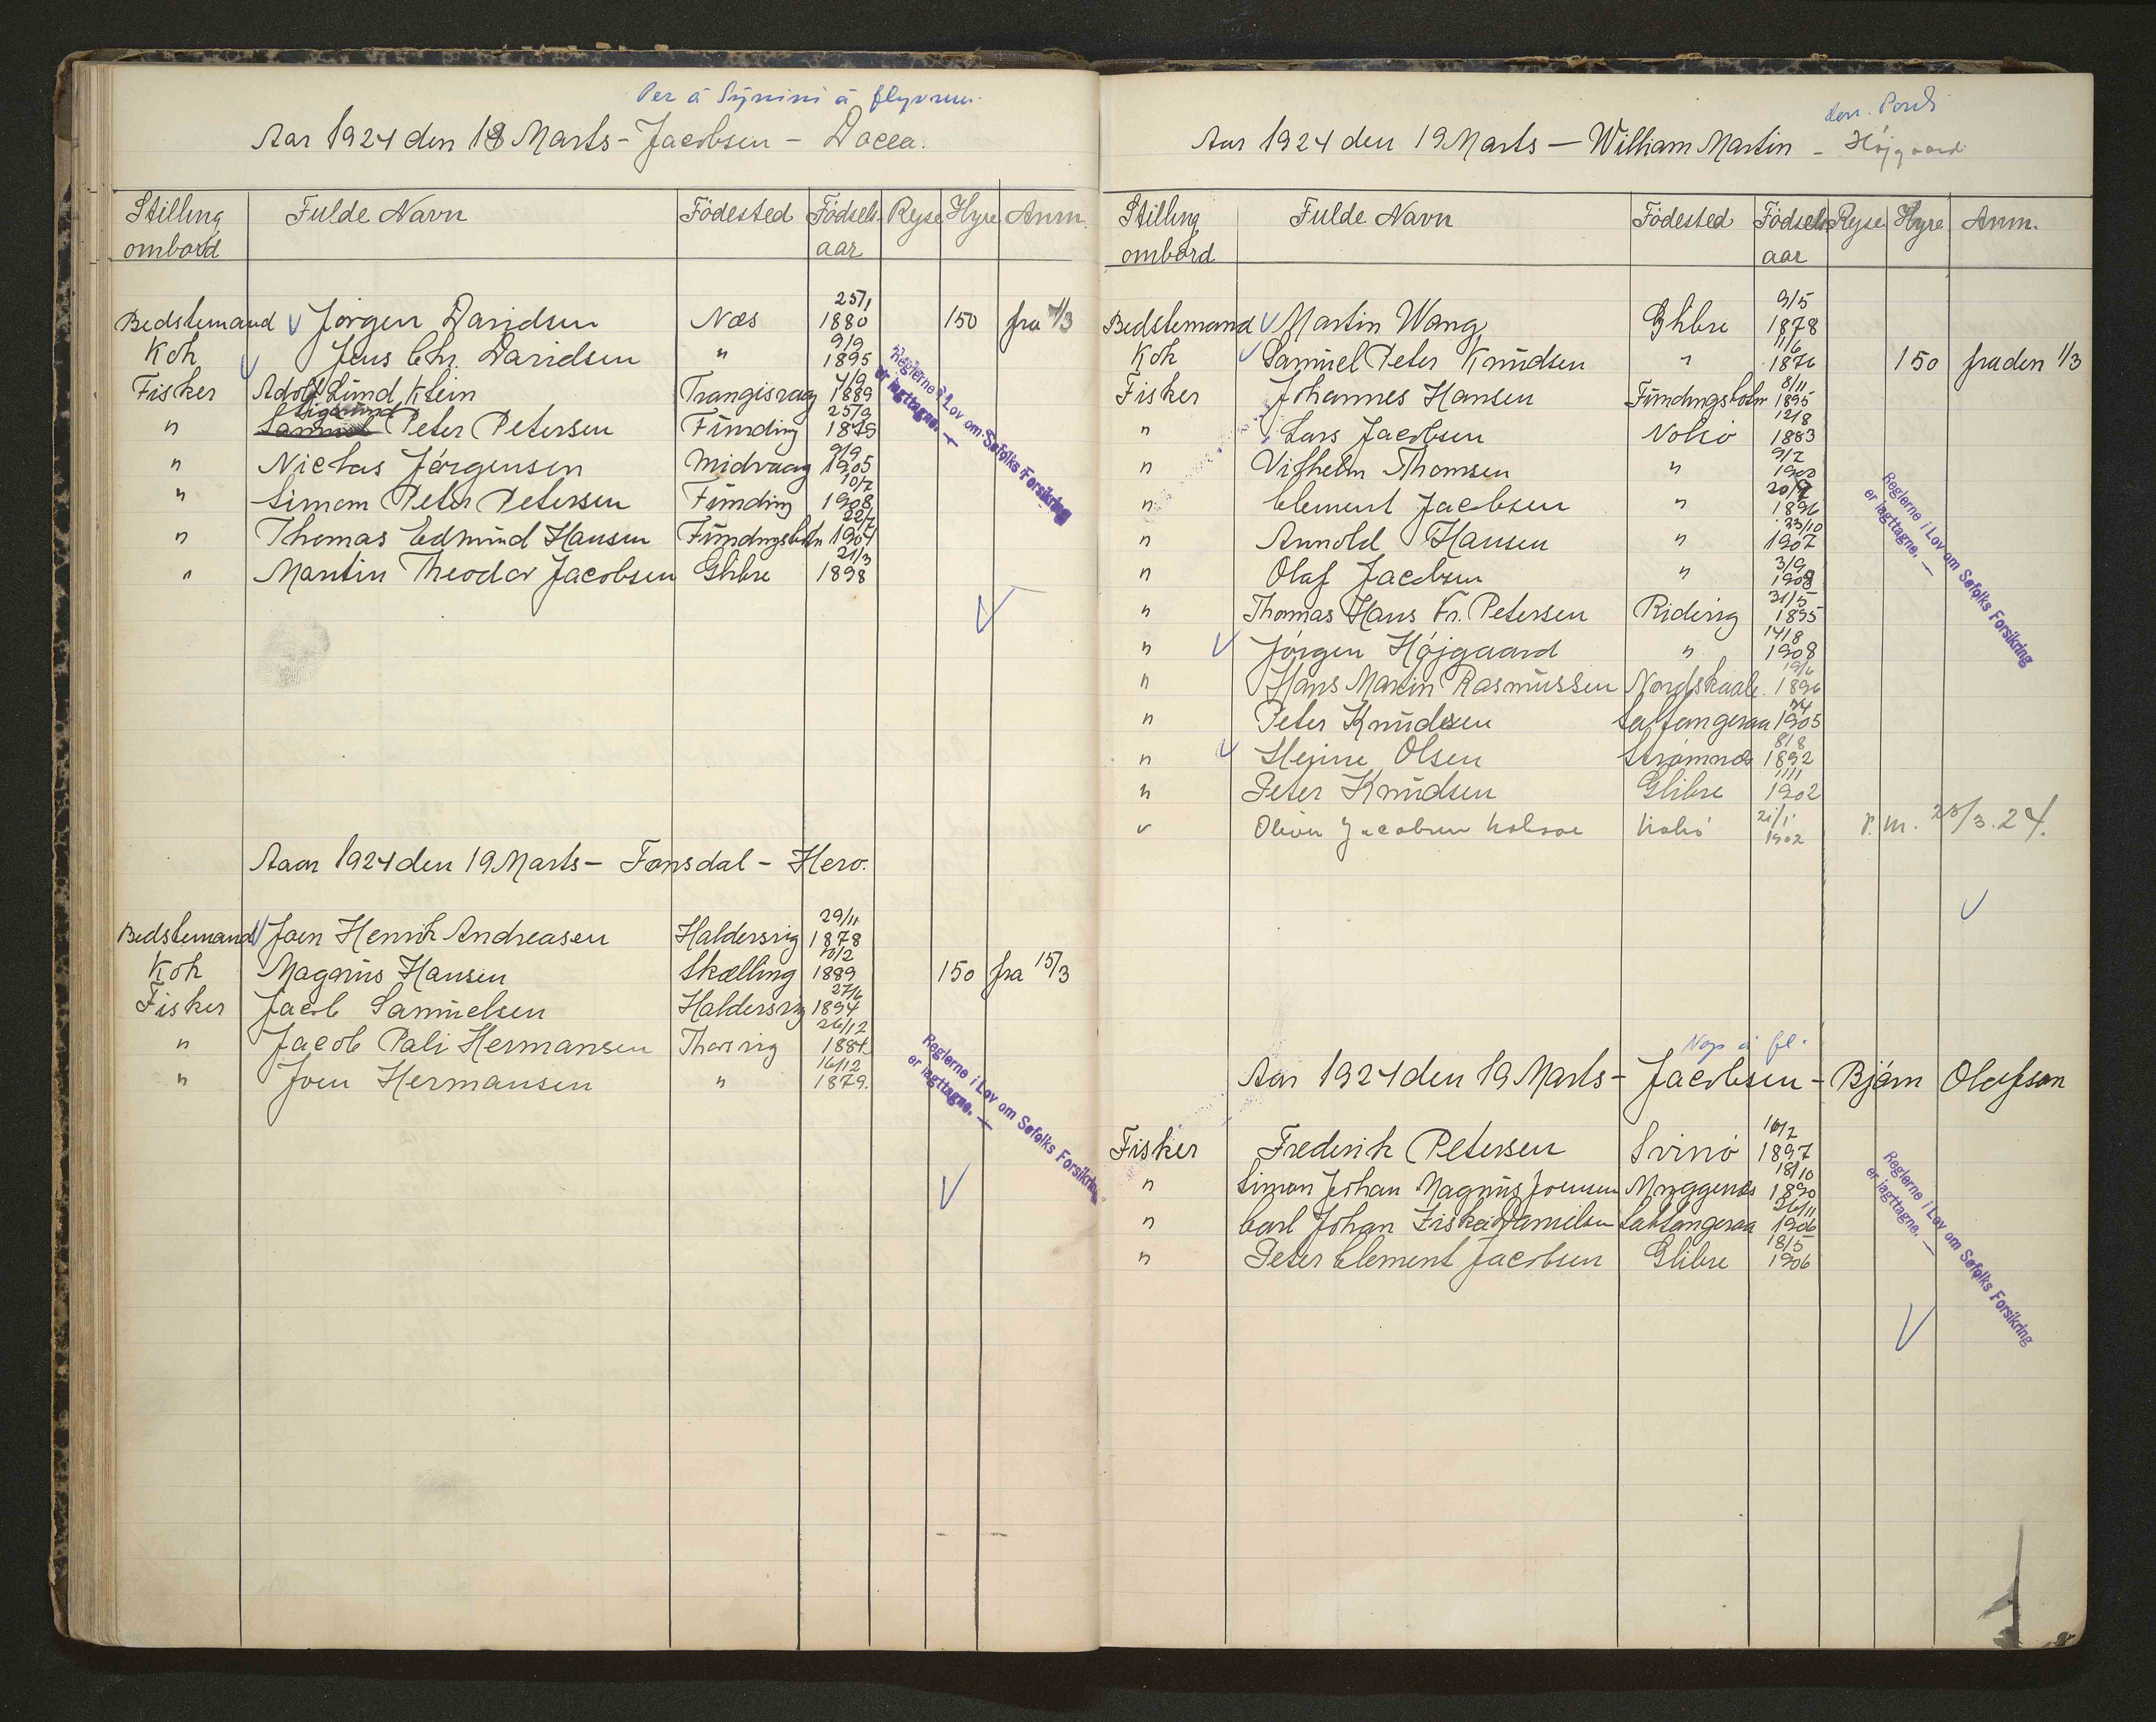 Aar 1924 den 18 Marts - Jacobsen - Dacea.
Stilling ombord Fulde Navn Födested Födsels aar Rejse Hyre Anm.
Bedstemand Jørgen Davidsen Næs 25/1 1880 150 fra /3
Kok Jens Chr. Davidsen " 9/9 1895
Fisker Adolf Lund Klein Trangisvaag 7/9 1889
Sigmund
" Samuel Peter Petersen Funding 25/9 1879
" Niclas Jørgensen Midvaag 9/9 1905
" Simon Peter Petersen Funding 10/7 1908
" Thomas Edmund Hansen Fundingsbotn 22/7 1904
" Martin Theodor Jacobsen Glibre 21/3 1898
Reglerne i Lov om Søfolks Forsikring
er iagttagne. —
Aar 1924 den 19 Marts - Fonsdal - Hero.
Bedstemand Joen Henrik Andreasen Haldersvig 29/11 1878
Kok Magnus Hansen Skælling 10/2 1889 150 fra 15/3
Fisker Jacob Samuelsen Haldersvig 27/6 1894
" Jacob Pali Hermansen Thorsvig 26/12 1884
" Joen Hermansen " 16/12 1879.
Reglerne i Lov om Søfolks Forsikring
er iagttagne. —
Aar 1924 den 19 Marts - William Martin - Højgaard
Stilling ombord Fulde Navn Födested Födsels aar Rejse Hyre Anm.
Bedstemand Martin Wang Glibre 9/5 1878
Kok Samuel Peter Knudsen " 11/6 1876 150 fra den 1/3
Fisker Johannes Hansen Fundingsbotn 8/11 1895
" Lars Jacobsen Nolsö 12/8 1883
" Vilhelm Thomsen " 9/2
" Clement Jacobsen " 1896
" Arnnold Hansen " 23/10 1907
" Olaf Jacobsen " 3/9 1908
" Thomas Hans Fr. Petersen Ridevig 31/5 1895
" Jørgen Højgaard " 14/8 1908
" Hans Martin Rasmussen Nordskaale 19/6 1896
" Peter Knudsen Saltangeraa 1905
" Hejine Olsen Strømnæs 8/8 1892
" Peter Knudsen Glibre 11/11 1902
" Oliver Jacobsen Nolsoe Nolsö 21/1 1902 P.m. 25/3.24.
Reglerne i Lov om Søfolks Forsikring
er iagttagne. —
Aar 1924 den 19 Marts - Jacobsen - Björn Olafson
Fisker Frederik Petersen Svinö 10/2 1897
" Simon Johan Magnus Joensen Myggenæs 18/10 1890
" Carl Johan Fisker Danielsen Saltangeraa 26/11 1906
" Peter Clement Jacobsen Glibre 18/5 1906
Reglerne i Lov om Søfolks Forsikring
er iagttagne. —